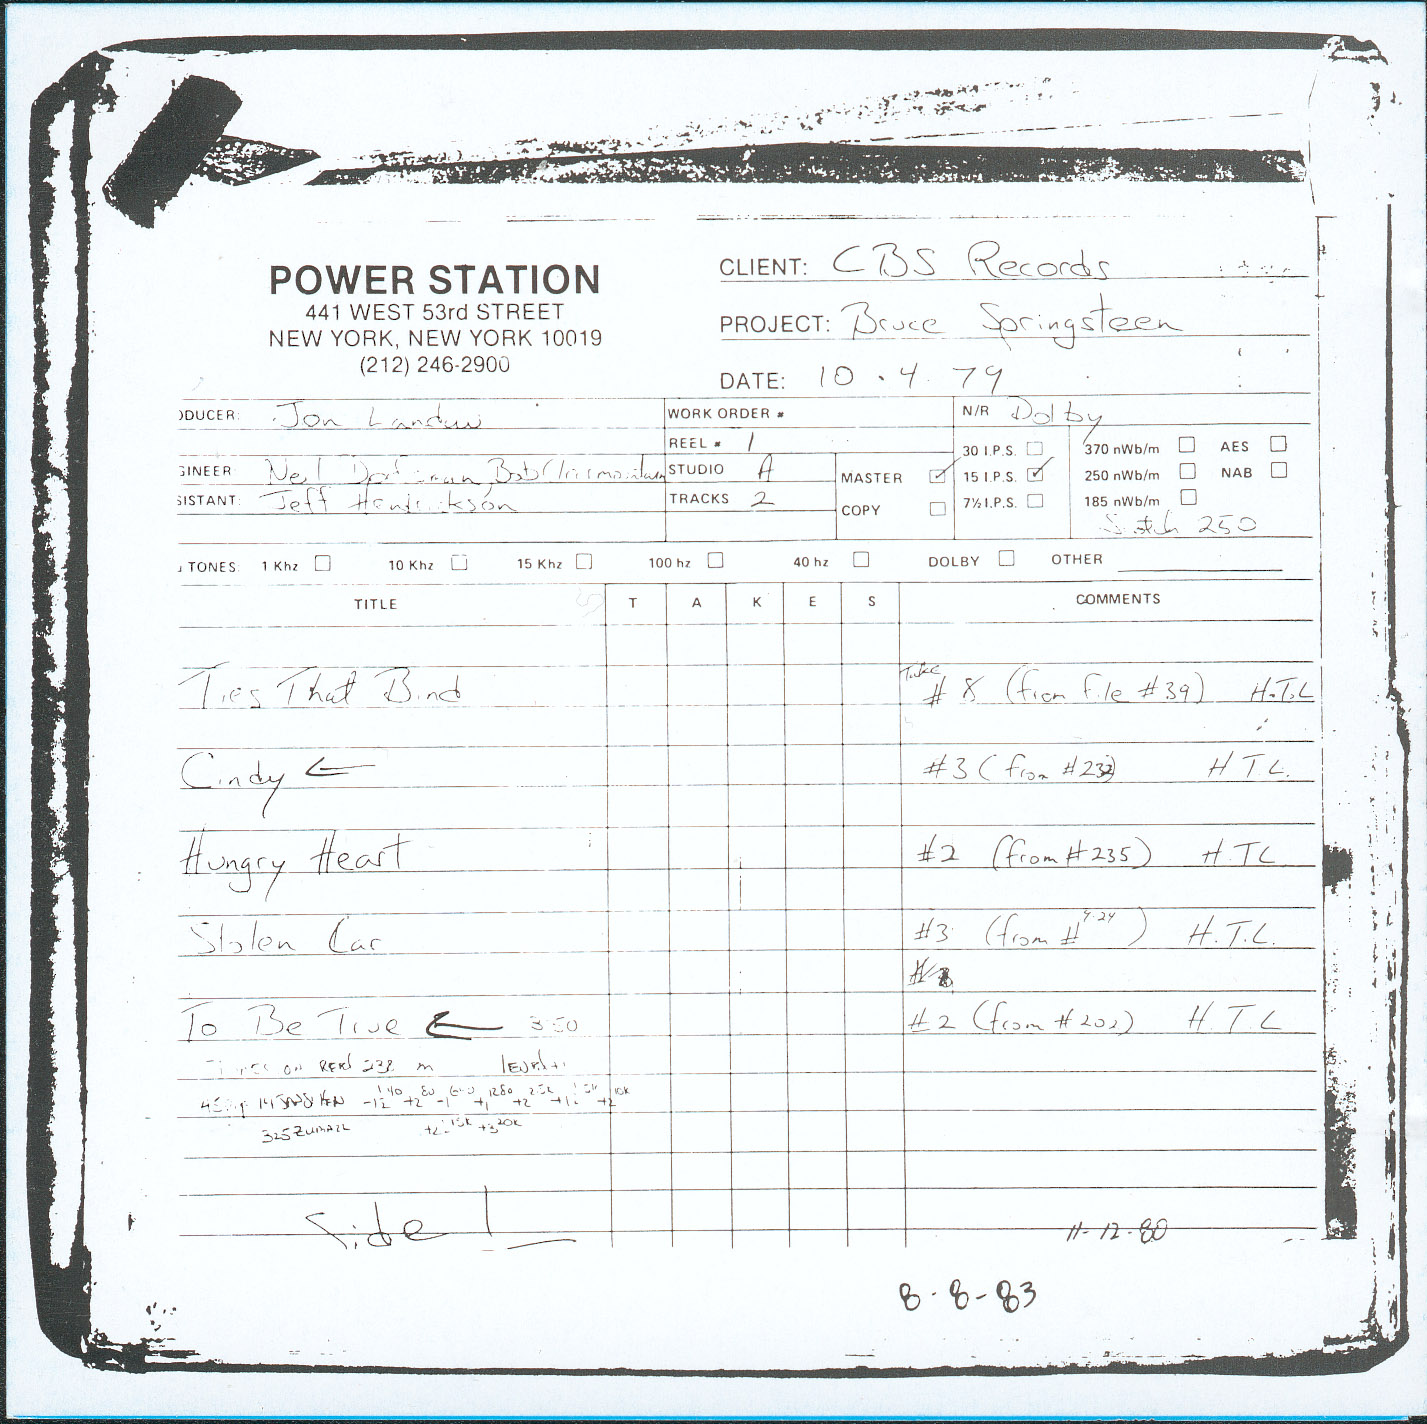 POWER STATION
441 WEST 53rd STREET
NEW YORK, NEW YORK 10019
(212) 246-2900
CLIENT: CBS Records
PROJECT: Bruce Springsteen
DATE: 10.4.79
ODUCER: Jon Landau
GINEER: Neil Bob
SISTANT: Jeff Hendrickson
WORK ORDER #
REEL # 1
STUDIO A
TRACKS 2
MASTER
COPY
N/R Dolby
30 I.P.S.
15 I.P.S.
7½ I.P.S.
370 nWb/m AES
250 nWb/m NAB
185 nWb/m
Scotch 250
TONES: 1 Khz 10 Khz 15 Khz 100 hz 40 hz DOLBY OTHER
TITLE T A K E S COMMENTS
Ties That Bind Take #8 (from file #39) H.T.L
Cindy ← #3 (from #232) H T L.
Hungry Heart #2 (from #235) H.TL
Stolen Car #3 (from # 9-24) H.T.L.
To Be True ← 3:50 #2 (from #202) H T L
ON 238 m
-12 +2 80 -1 +1 1280 +2 +2 10K
+2 15K +3 20K
Side 1
11-12-80
8-8-83